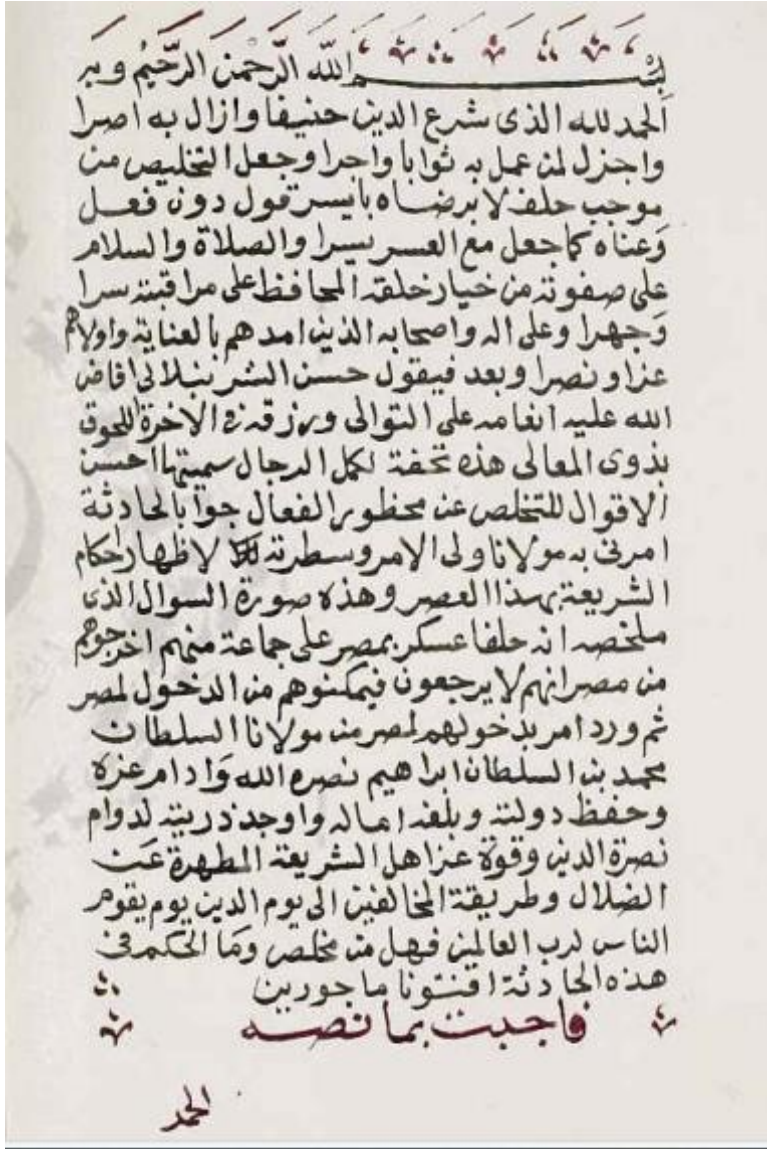 بسم الله الرحمن الرحيم وبه
الحمد لله الذى شرع الدين حنيفا وازال به اصرا
واجزل لمن عمل به ثوابا واجرا وجعل التخليص من
موجب حلف لا برضاه بايسر قول دون فعل
وعناه كما جعل مع العسر يسرا والصلاة والسلام
على صفوته من خيار خلقه المحافظ على مراقبته سرا
وجهرا وعلى اله واصحابه الذين امدهم بالعناية واولاهم
عزا ونصرا وبعد فيقول حسن الشرنبلالى افاض
الله عليه انعامه على التوالى ورزقه فى الاخرة اللحوق
بذوى المعالى هذه تحفة لكمل الرجال سميتها احسن
الاقوال للتخلص عن محظور الفعال جوابا لحادثة
امرنى به مولانا ولى الامر وسطرته لاظهار احكام
الشريعة بهذا العصر وهذه صورة السوال الذى
ملخصه انه حلفا عسكر بمصر على جماعة منهم اخرجوهم
من مصر انهم لا يرجعون فيمكنوهم من الدخول لمصر
ثم ورد امر بدخولهم لمصر من مولانا السلطان
محمد بن السلطان ابراهيم نصره الله وادام عزه
وحفظ دولته وبلغه اماله واوجد ذريته لدوام
نصرة الدين وقوة عز اهل الشريعة المطهرة عن
الضلال وطريقة المخالفين الى يوم الدين يوم يقوم
الناس لرب العالمين فهل من مخلص وما الحكم فى
هذه الحادثة افتونا ماجورين
فاجبت بما نصه
الحمد